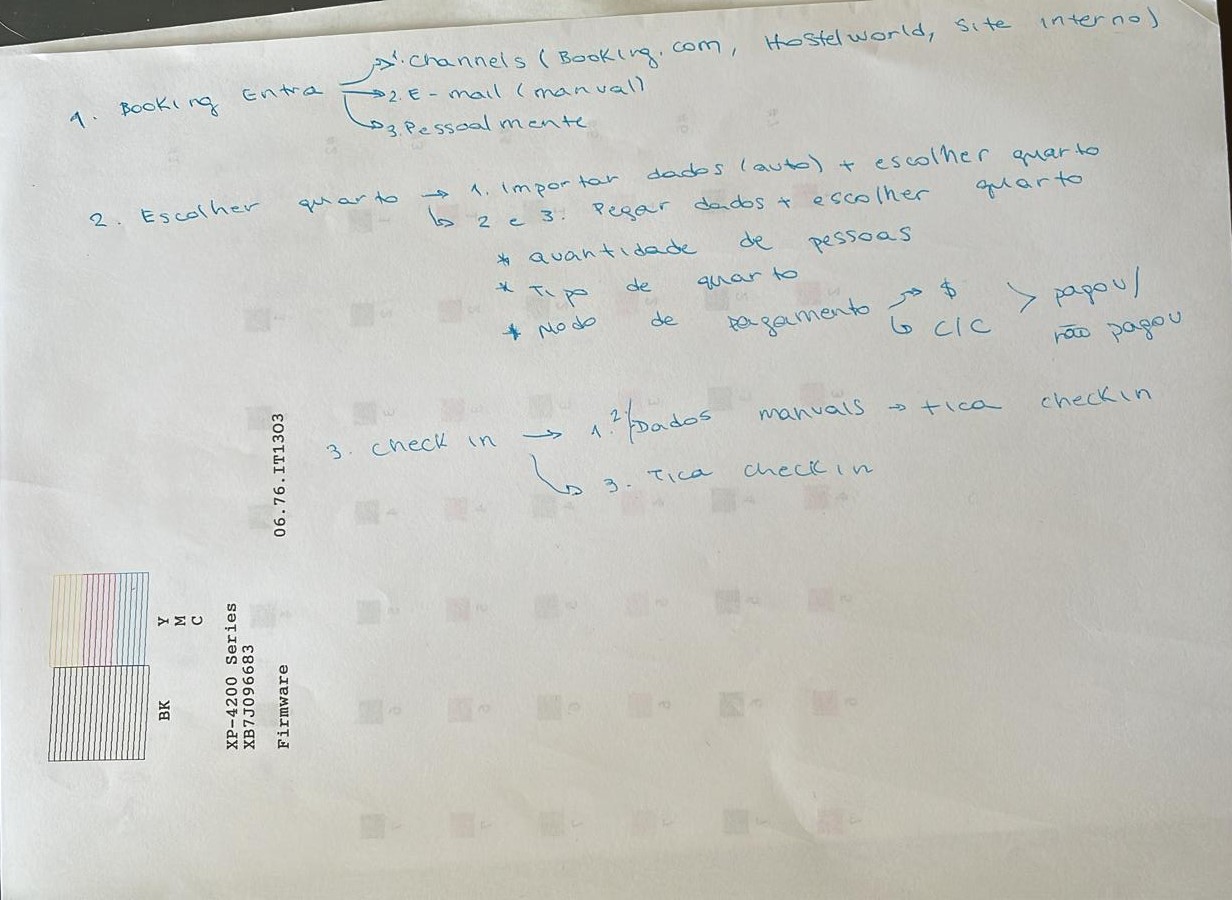 1. Channels (Booking.com, Hostelworld, Site interno)
1. Booking Entra
2. E-mail (manual)
3. Pessoalmente
2. Escolher quarto → 1. Importar dados (auto) + escolher quarto
↳ 2 e 3. Pegar dados + escolher quarto
* Quantidade de pessoas
* Tipo de quarto
* Modo de pagamento → $ > pagou/
↳ C/C não pagou
3. Check in → 1. 2/ Dados manuais → tica checkin
↳ 3. Tica checkin
06.76.IT13O3
Y
M
C
BK
XP-4200 Series
XB7J096683
Firmware